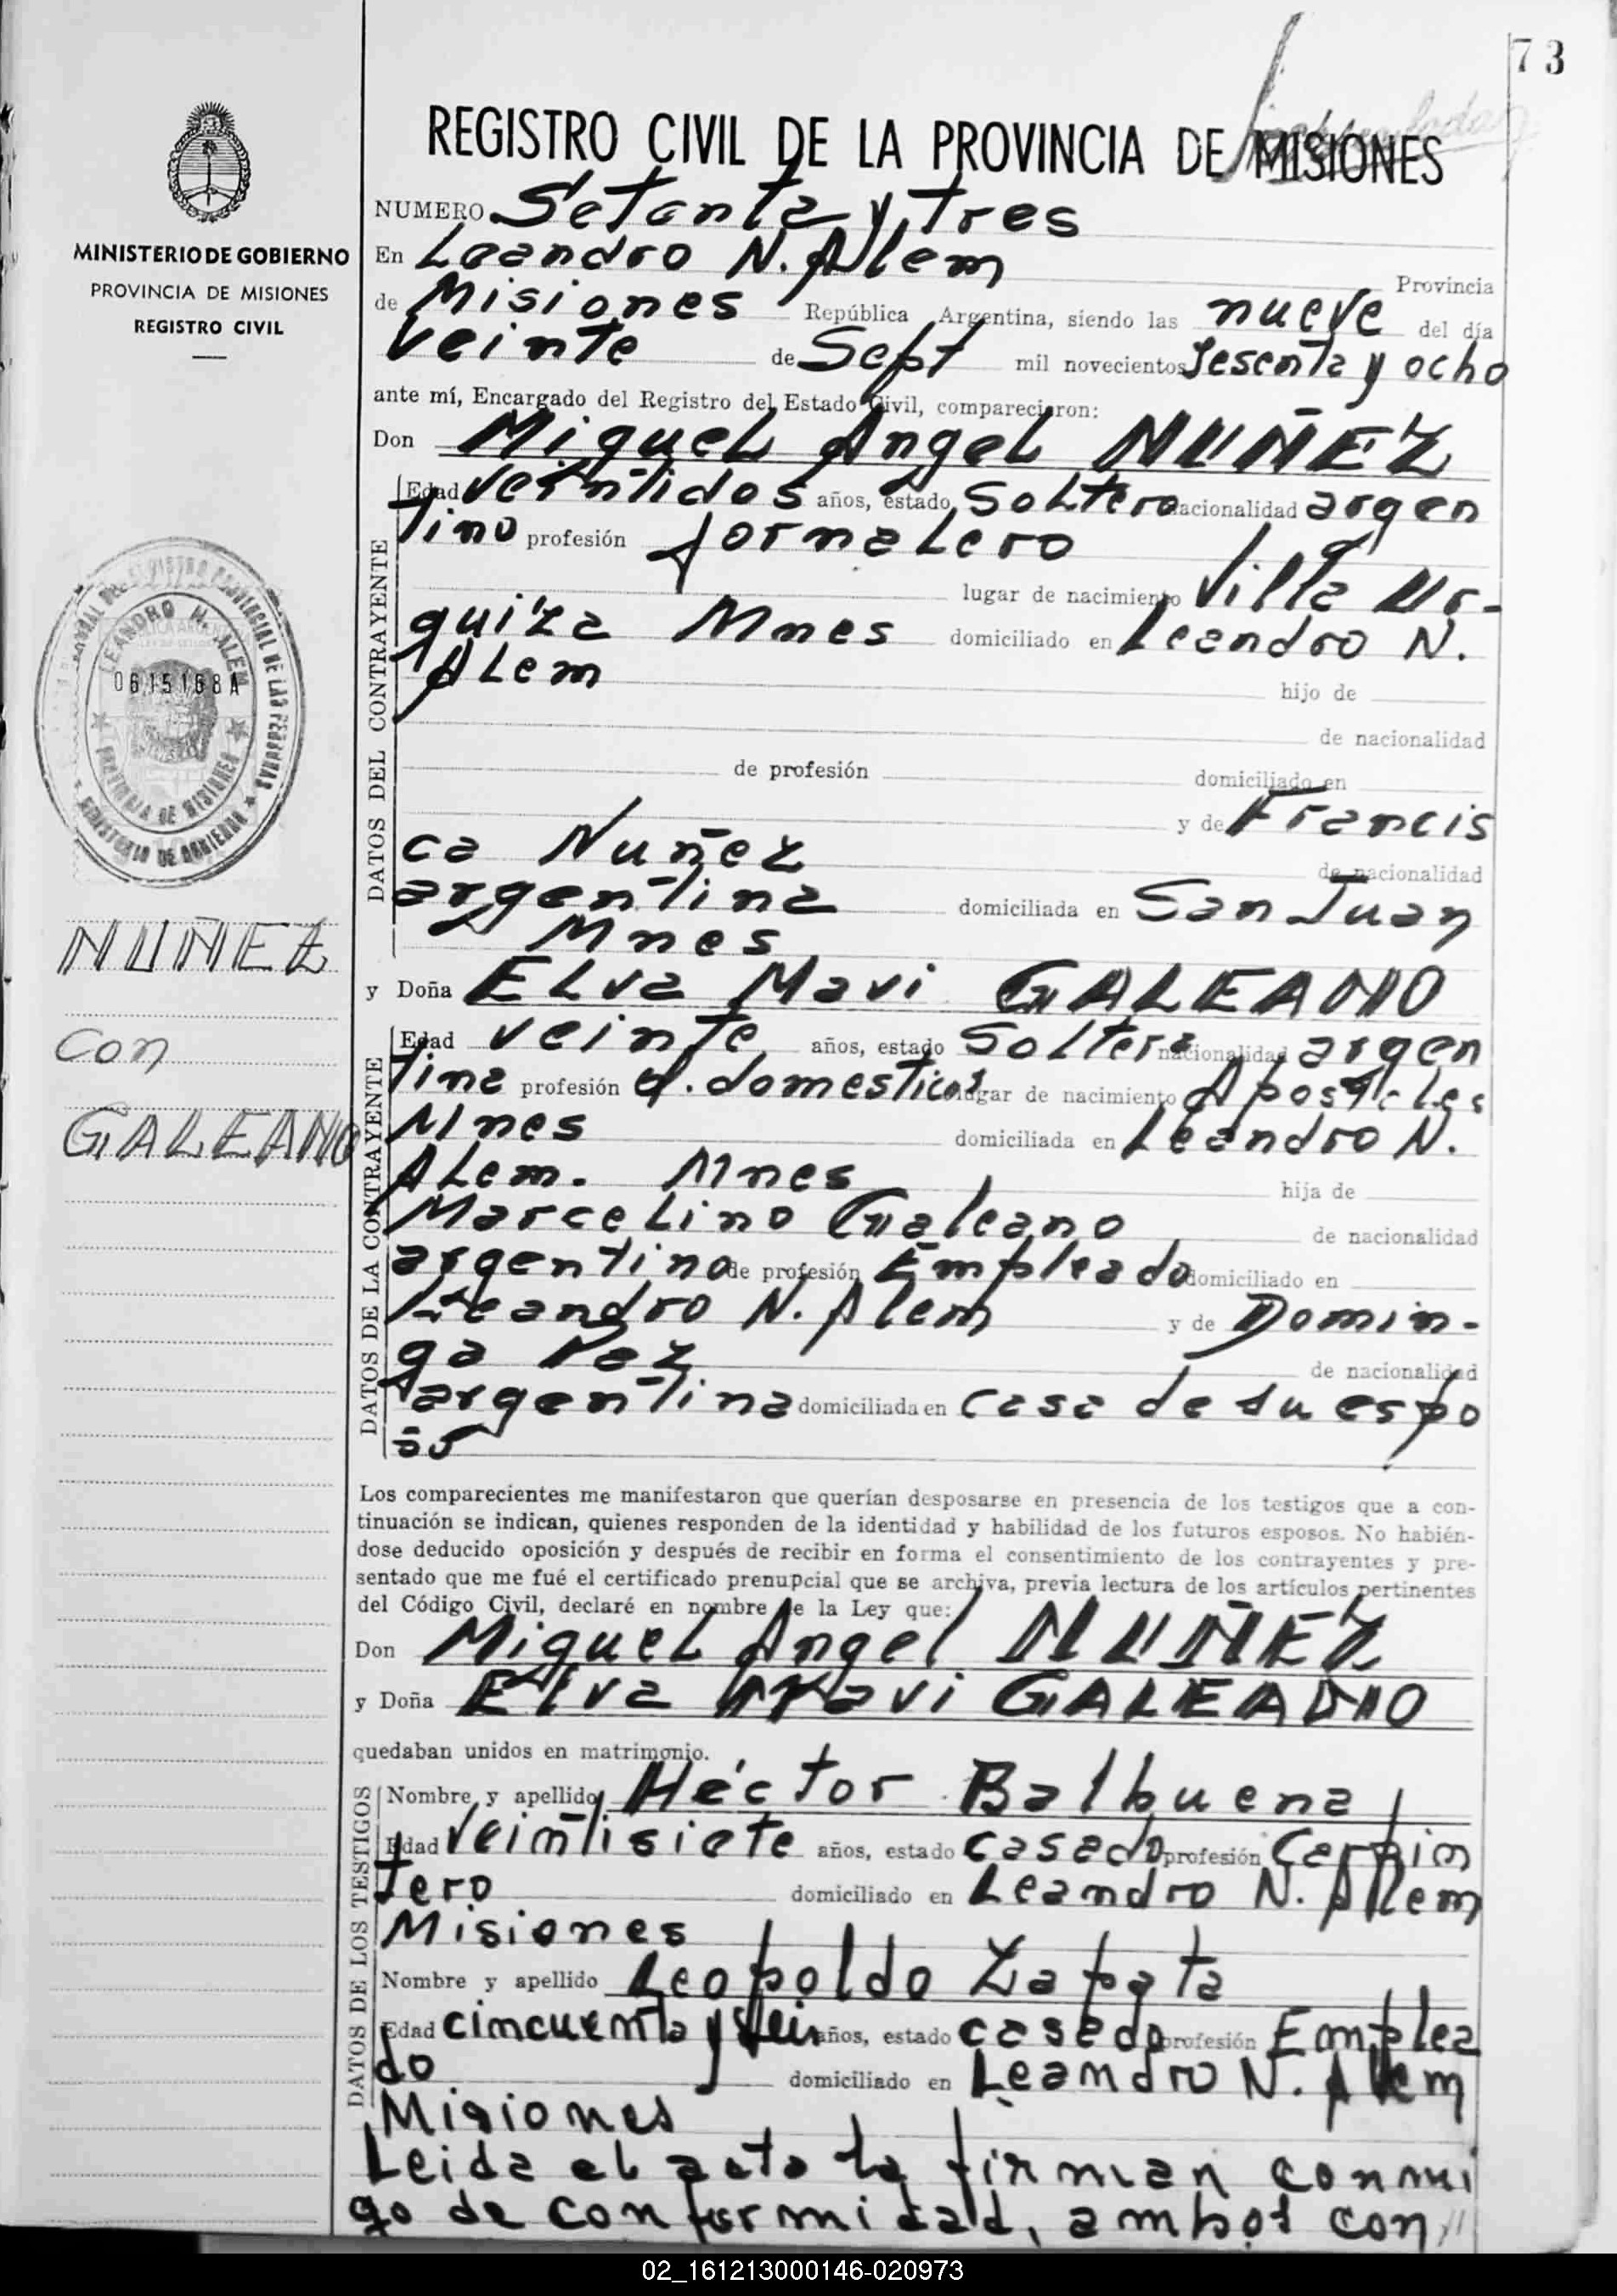 73
REGISTRO CIVIL DE LA PROVINCIA DE MISIONES
MINISTERIO DE GOBIERNO
PROVINCIA DE MISIONES
REGISTRO CIVIL
NUMERO Setanta y tres
En Leandro N. Alem Provincia
de Misiones República Argentina, siendo las nueve del día
veinte de Sept mil novecientos sesenta y ocho
ante mí, Encargado del Registro del Estado Civil, comparecieron:
Don Miguel Angel NUÑEZ
DATOS DEL CONTRAYENTE
Edad veintidos años, estado Soltero nacionalidad argen
tino profesión Jornalero
lugar de nacimiento Villa Ur-
quiza Mnes domiciliado en Leandro N.
Alem hijo de
de nacionalidad
de profesión domiciliado en
y de Francis
ca Nuñez de nacionalidad
argentina domiciliada en San Juan
Mnes
LEANDRO N. ALEM
0615168A
PROVINCIA DE MISIONES
MINISTERIO DE GOBIERNO
NUÑEZ
con
GALEANO
y Doña Elva Mavi GALEANO
DATOS DE LA CONTRAYENTE
Edad veinte años, estado Soltera nacionalidad argen
tina profesión q. domesticos lugar de nacimiento Apostoles
Mnes domiciliada en Leandro N.
Alem. Mnes hija de
Marcelino Galeano de nacionalidad
argentino de profesión Empleado domiciliado en
Leandro N. Alem y de Domin-
ga Paz de nacionalidad
argentina domiciliada en casa de su espo
so
Los comparecientes me manifestaron que querían desposarse en presencia de los testigos que a con-
tinuación se indican, quienes responden de la identidad y habilidad de los futuros esposos. No habién-
dose deducido oposición y después de recibir en forma el consentimiento de los contrayentes y pre-
sentado que me fué el certificado prenupcial que se archiva, previa lectura de los artículos pertinentes
del Código Civil, declaré en nombre de la Ley que:
Don Miguel Angel NUÑEZ
y Doña Elva Mavi GALEANO
quedaban unidos en matrimonio.
DATOS DE LOS TESTIGOS
Nombre y apellido Héctor Balbuena
Edad Veintisiete años, estado casado profesión Carpin
tero domiciliado en Leandro N. Alem
Misiones
Nombre y apellido Leopoldo Zapata
Edad cincuenta y seis años, estado casado profesión Emplea
do domiciliado en Leandro N. Alem
Misiones
Leida el acta la firman conmi
go de conformidad, ambos con
02_161213000146-020973